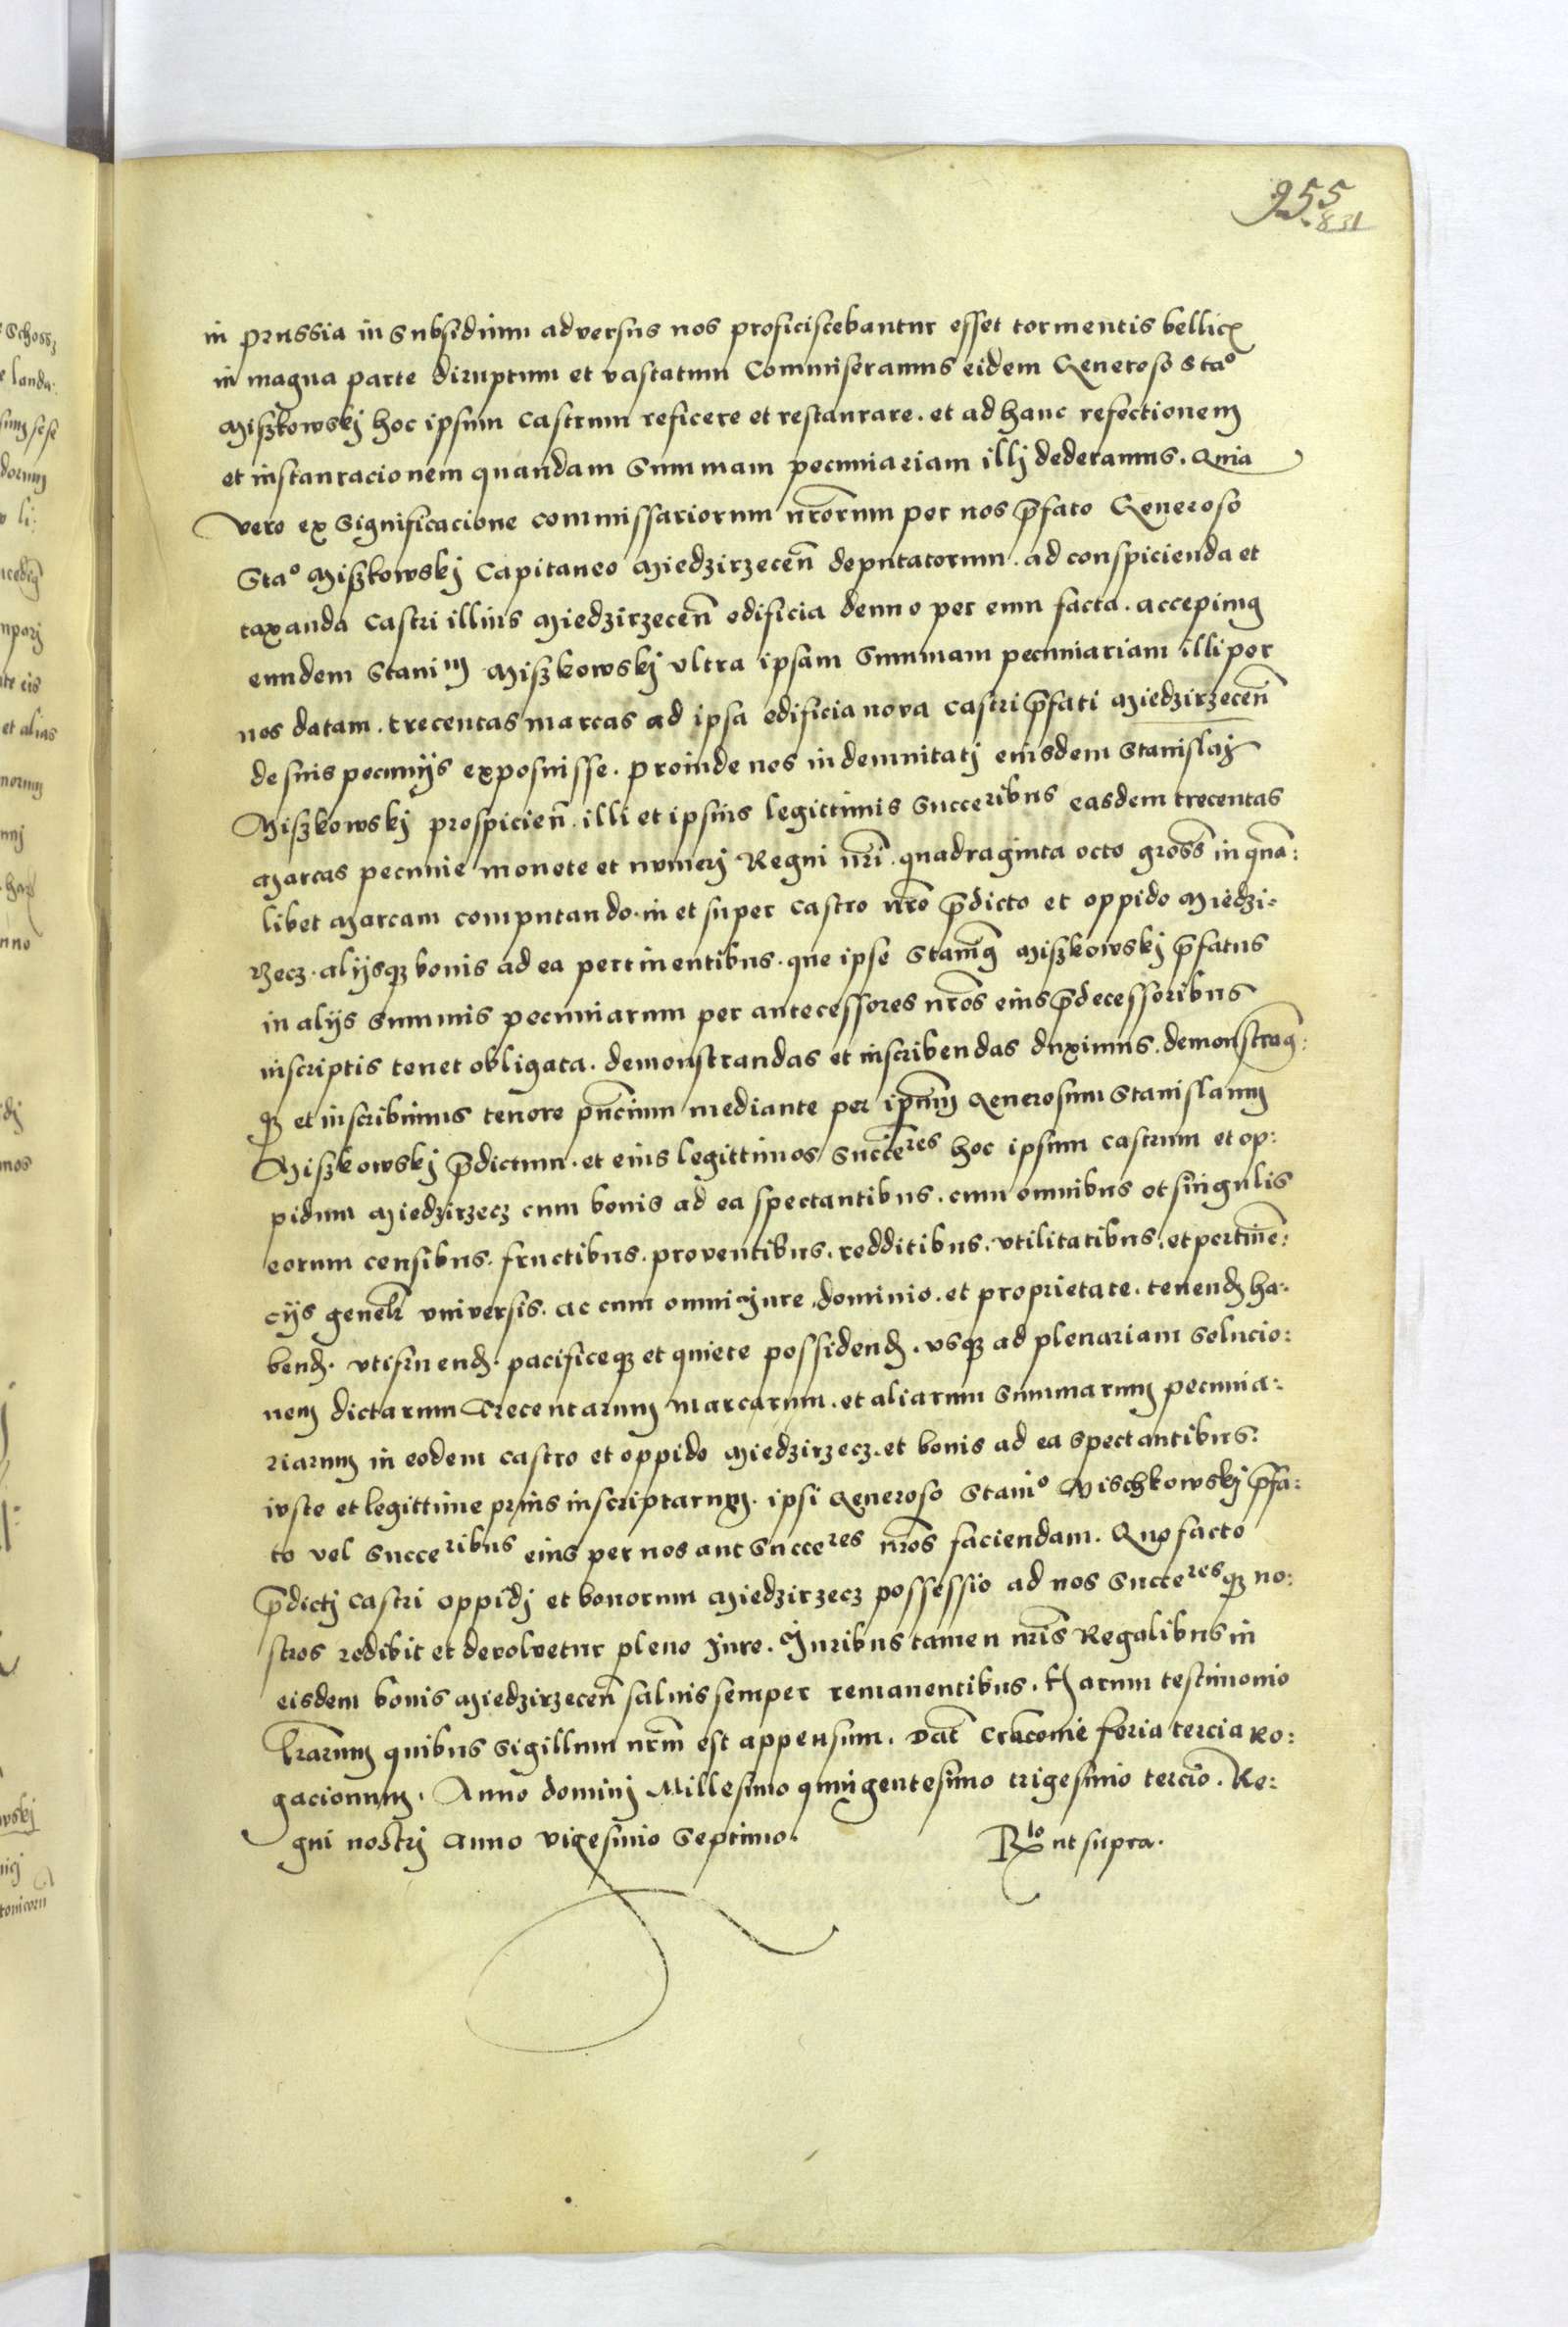 955
831
in prussia in subsidium adversus nos proficiscebantur esset tormentis bellic
in magna parte diruptum et vastatum Commiseramus eidem Generoso Sta°
Miszkowskj hoc ipsum castrum reficere et restaurare. et ad hanc refectionem
et instauracionem quandam summam pecuniariam illj dederamus. Quia
vero ex significacione commissariorum nr̃orum per nos p̃fato Generoso
Sta° Miszkowskj Capitaneo Miedzirzeceñ deputatorum. ad conspicienda et
taxanda castri illius Miedzirzeceñ edificia denuo per eum facta. accepimꝰ
eundem Staniᵐ Miszkowskj ultra ipsam summam pecuniariam illi per
nos datam. trecentas marcas ad ipsa edificia nova castri p̃fati Miedzirzeceñ
de suis pecunijs exposuisse. proinde nos indemnitatj eiusdem Stanislaj
Miszkowskj prospicieñ. illi et ipsius legittimis succeribus easdem trecentas
Marcas pecunie monete et numerj Regni nr̃i. quadraginta octo gross̃ in quã:
libet Marcam computando. in et super castro nr̃o p̃dicto et oppido Miedzi:
rzecz. alijsqꝫ bonis ad ea pertinentibus. que ipse Stanisꝰ Miszkowskj p̃fatus
in alijs summis pecuniarum per antecessores nr̃os eius p̃decessoribus
inscriptis tenet obligata. demonstrandas et inscribendas duximus. demonstramꝰ:
qꝫ et inscribimus tenore pñcium mediante per ip̃um Generosum Stanislaum
Miszkowskj p̃dictum. et eius legittimos succẽres hoc ipsum castrum et op:
pidum Miedzirzecz cum bonis ad ea spectantibus. cum omnibus et singulis
eorum censibus. fructibus. proventibus. redditibus. utilitatibus. et pertinẽ:
cijs geneℓr universis. ac cum omni Jure, dominio. et proprietate. tenend̃ ha:
bend̃. utifruend̃. pacificeqꝫ et quiete possidend̃. usqꝫ ad plenariam solucio:
nem dictarum Trecentarum marcarum. et aliarum summarum pecunia:
riarum in eodem castro et oppido Miedzirzecz. et bonis ad ea spectantibus.
iuste et legittime prius inscriptarum. ipsi Generoso Stani° Mischkowskj p̃fa:
to vel succeribus eius per nos aut succeres nr̃os faciendam. Quo facto
p̃dictj castri oppidj et bonorum Miedzirzecz possessio ad nos succeresqꝫ no:
stros redibit et devolvetur pleno Jure. Juribus tamen nr̃is Regalibus in
eisdem bonis Miedzirzeceñ salvis semper remanentibus. Harum testimonio
lr̃arum quibus sigillum nr̃m est appensum. Dat̃ Cracovie feria tercia Ro:
gacionum. Anno dominj Millesimo quingentesimo trigesimo tercio. Re:
gni nostrj anno vigesimo septimo.
Rˡᵒ ut supra.